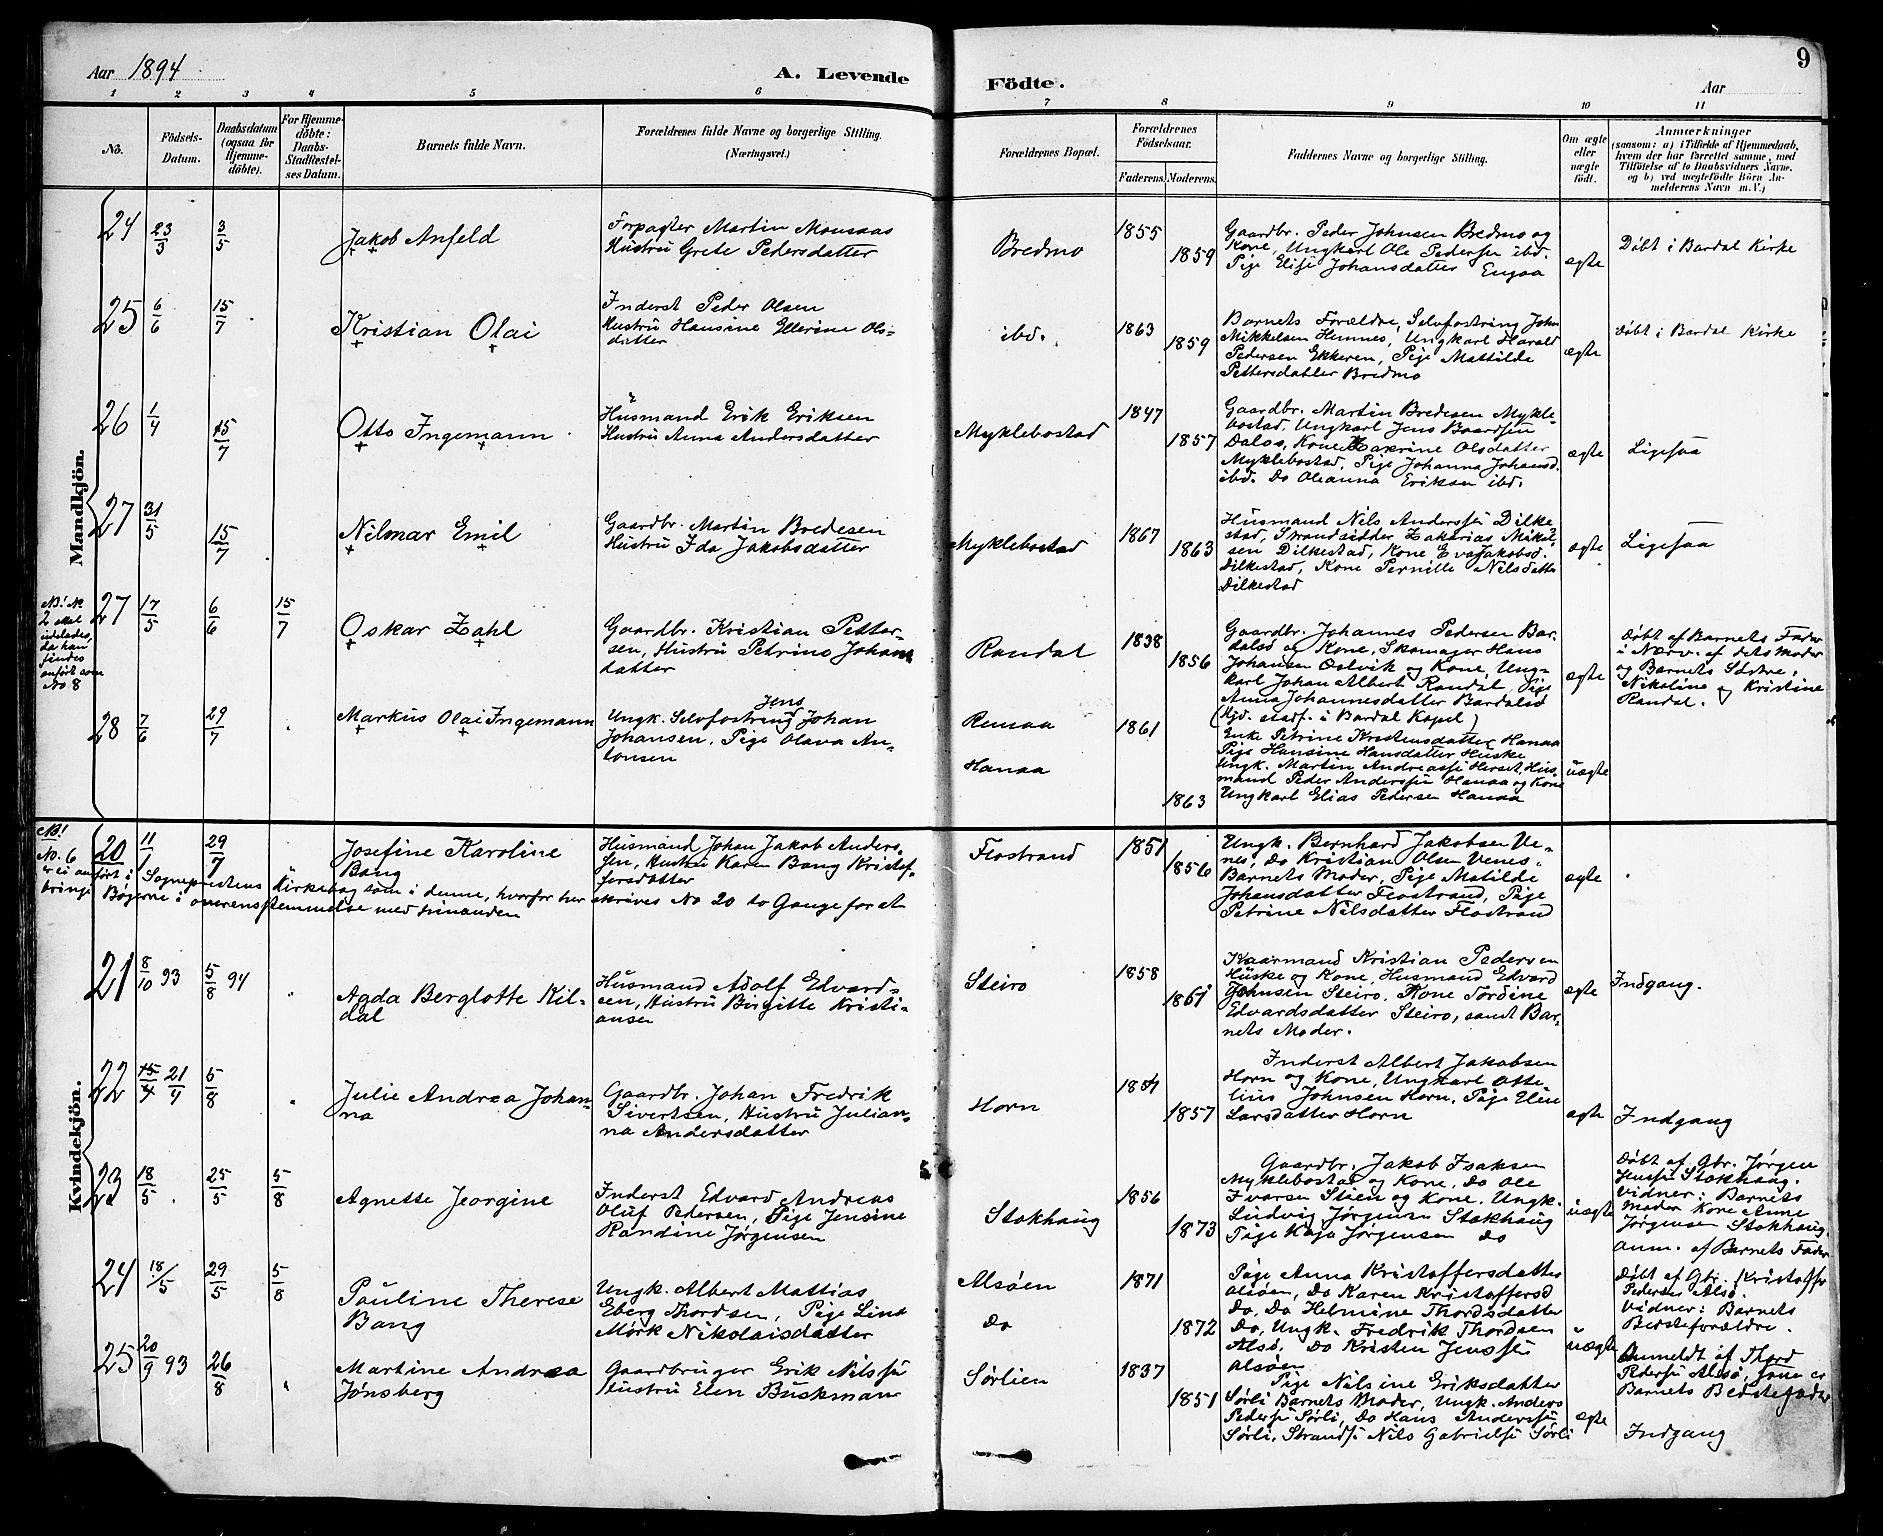 Aar 1894.
A. Levende
Födte.
Aar
9
1 2 3 4 5 6 7 8 9 10 11
No.
Födsels-
Datum.
Daabsdatum
(ogsaa for
Hjemme-
döbte).
For Hjemme-
döbte:
Daabs-
Stadfæstel-
ses Datum.
Barnets fulde Navn.
Forældrenes fulde Navne og borgerlige Stilling.
(Næringsvei.)
Forældrenes Bopæl.
Forældrenes
Födselsaar.
Faderens. Moderens.
Faddernes Navne og borgerlige Stilling.
Om ægte
eller
uægte
födt.
Anmærkninger
(saasom: a) i Tilfælde af Hjemmedaab,
hvem der har forrettet samme, med
Tilföielse af to Daabsvidners Navne,
og b) ved uægtefödte Börn An-
melderens Navn m. V.)
Mandkjön.
24 23/3 3/5
Jakob Anfeld
Forpagter Martin Monsaas
Hustru Grete Pedersdatter
Bredmo
1855
1859
Gaardbr. Peder Johnsen Bredmo og
Kone, Ungkarl Ole Pedersen ibd.
Pige Elise Johansdatter Engaa
ægte
Døbt i Bardal Kirke
25 6/6 15/7
Kristian Olai
Inderst Peder Olsen
Hustru Hansine Ellerine Ols-
datter
ibd.
1863
1859
Barnets Forældre, Selvfostring John
Mikkelsen Hemnes, Ungkarl Harald
Pedersen Ekkeren, Pige Mattilde
Pettersdatter Bredmo
ægte
Døbt i Bardal Kirke
26 1/4 15/7
Otto Ingemann
Husmand Erik Eriksen
Hustru Anna Andersdatter
Myklebostad
1847
1857
Gaardbr. Martin Bredesen Mykle-
bostad, Ungkarl Jens Baardsen
Dalos, Kone Zakrine Olsdatter
Myklebostad, Pige Johanna Johansd.
ibd. Do Oleanna Eriksen ibd.
ægte
Ligesaa
27 31/5 15/7
Nilmar Emil
Gaardbr. Martin Bredesen
Hustru Ida Jakobsdatter
Myklebostad
1867
1863
Husmand Nils Anderssen Dilke-
stad, Strandsidder Zakarias Mikel-
sen Dilkestad, Kone Eva Jakobsd.
Dilkestad, Kone Pernille Nilsdatter
Dilkestad
ægte
Ligesaa
NB! No
2 skal
udelades,
da han
findes
anført som
No 8
27 17/5 6/6 15/7
Oskar Zahl
Gaardbr. Kristian Petter-
sen, Hustru Petrine Johans
datter
Randal
1838
1856
Gaardbr. Johannes Pedersen Bar-
dalsø og Kone, Skomager Hans
Johansen Oslvik og Kone, Ung-
karl Johan Albert Randal, Pige
Anna Johannesdatter Bardalsø
(Hjd. stadf. i Bardal Kapel)
ægte
Døbt af Barnets Fader
i Nærv. af dets Moder
og Barnets Søstre,
Nikoline og Kristine
Randal.
28 7/6 29/7
Markus Olai Ingemann
Jens
Ungk. Selvfostring Johan
Johansen, Pige Olava An-
tonsen
Remaa
Hanaa
1861
1863
Enke Petrine Kristensdatter Hanaa
Pige Hansine Hansdatter Huske
Ungk. Martin Andreassen Herset, Hus-
mand Peder Anderssen Hanaa og Kone
Ungkarl Elias Pedersen Hanaa
uægte
Kvindekjön.
20 11/1 29/7
Josefine Karoline
Bang
Husmand Johan Jakob Anders-
sen, Hustru Karen Bang Kristof-
fersdatter
Flostrand
1851
1856
Ungk. Bernhard Jakobsen Ve-
nes, Do Kristian Olsen Venes,
Barnets Moder, Pige Matilde
Johansdatter Flostrand, Pige
Petrine Nilsdatter Flostrand
ægte
NB!
No. 6
er ei anført i Sogneprestens Kirkebog som i denne, hvorfor her skrives No 20 to Gange for at
bringe Bøgerne i overensstemmelse med hinanden
21 8/10 93 5/8 94
Agda Berglotte Kil-
dal
Husmand Adolf Edvard-
sen, Hustru Birgitte Kristi-
ansen
Steiro
1858
1861
Kaarmand Kristian Pedersen
Huske og Kone, Husmand Edvard
Johnsen Steiro, Kone Tordine
Edvardsdatter Steiro, samt Bar-
nets Moder.
ægte
Indgang.
22 15/4 21/4 5/8
Julie Andrea Johan-
na
Gaardbr. Johan Fredrik
Sivertsen, Hustru Julian-
na Andersdatter
Horn
1857
Inderst Albert Jakobsen
Horn og Kone, Ungkarl Otte-
lius Johnsen Horn, Pige Elen
Larsdatter Horn
ægte
Indgang
23 18/5 25/5 5/8
Agnette Jeorgine
Inderst Edvard Andreas
Oluf Pedersen, Pige Jensine
Randine Jørgensen
Stokhaug
1856
1873
Gaardbr. Jakob Isaksen
Myklebostad og Kone, Do Ole
Ivarsen Stien og Kone, Ungk.
Ludvig Jørgensen Stokhaug
Pige Kaja Jørgensen Do
uægte
Døbt af Gbr. Jørgen
Stokhaug.
Vidner: Barnets
Moder Kone Anne
Jørgensen Stokhaug.
Anm. af Barnets Fader
24 18/5 29/5 5/8
Pauline Therese
Bang
Ungk. Albert Mattias
Eberg Thordsen, Pige Lina
Mørk Nikolaisdatter
Alsøen
Do
1871
1872
Pige Anna Kristoffersdatter
Alsøen, Do Karen Kristoffersd
Do, Do Helmine Thordsdatter
Do, Ungk. Fredrik Thordsen
Alsø, Do Kristen Jenssen
Alsøen
uægte
Døbt af Gbr. Kristoffer
Pedersen Alsø.
Vidner: Barnets
Bedsteforældre.
Anmeldt af Thord
Pedersen Alsø, som er
Barnets Bedstefader
25 20/9 93 26/8
Martine Andrea
Jønsberg
Gaardbruger Erik Nilssen
Hustru Elen Buskman
Sørlien
1837
1851
Pige Nilsine Eriksdatter
Sørli Barnets Moder, Ungk. Anders
Pedersen Sørli, Do Hans Anderssen
Sørli, Strands. Nils Gabrielsen Sørli
ægte
Indgang